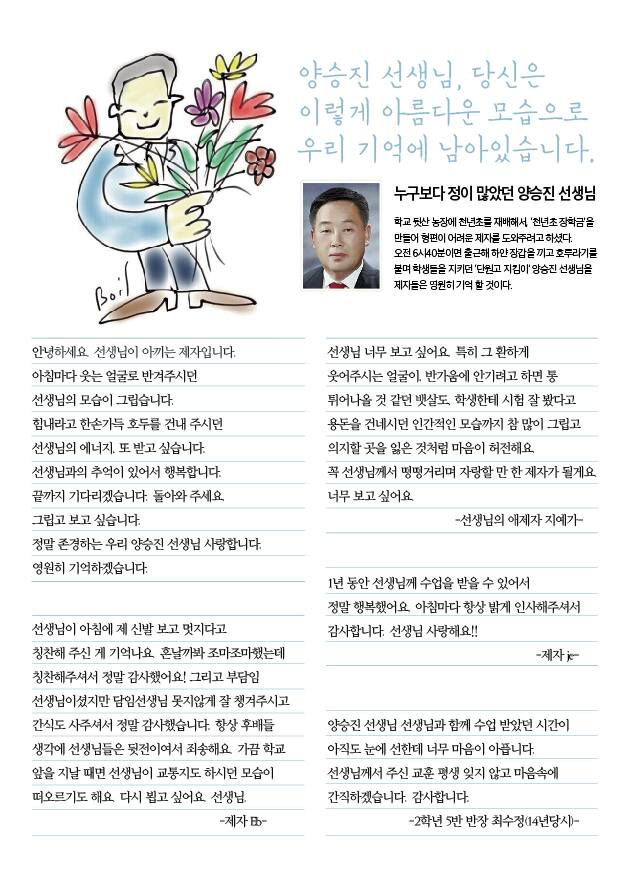 양승진 선생님, 당신은
이렇게 아름다운 모습으로
우리 기억에 남아있습니다.
누구보다 정이 많았던 양승진 선생님
학교 뒷산 농장에 천년초를 재배해서, '천년초 장학금'을
만들어 형편이 어려운 제자를 도와주려고 하셨다.
오전 6시40분이면 출근해 하얀 장갑을 끼고 호루라기를
불며 학생들을 지키던 '단원고 지킴이' 양승진 선생님을
제자들은 영원히 기억 할 것이다.
Boil
안녕하세요. 선생님이 아끼는 제자입니다.
아침마다 웃는 얼굴로 반겨주시던
선생님의 모습이 그립습니다.
힘내라고 한손가득 호두를 건내 주시던
선생님의 에너지. 또 받고 싶습니다.
선생님과의 추억이 있어서 행복합니다.
끝까지 기다리겠습니다. 돌아와 주세요.
그립고 보고 싶습니다.
정말 존경하는 우리 양승진 선생님 사랑합니다.
영원히 기억하겠습니다.
선생님이 아침에 제 신발 보고 멋지다고
칭찬해 주신 게 기억나요. 혼날까봐 조마조마했는데
칭찬해주셔서 정말 감사했어요! 그리고 부담임
선생님이셨지만 담임선생님 못지않게 잘 챙겨주시고
간식도 사주셔서 정말 감사했습니다. 항상 후배들
생각에 선생님들은 뒷전이여서 죄송해요. 가끔 학교
앞을 지날 때면 선생님이 교통지도 하시던 모습이
떠오르기도 해요. 다시 뵙고 싶어요. 선생님.
-제자 Eb-
선생님 너무 보고 싶어요. 특히 그 환하게
웃어주시는 얼굴이, 반가움에 안기려고 하면 통
튀어나올 것 같던 뱃살도, 학생한테 시험 잘 봤다고
용돈을 건네시던 인간적인 모습까지 참 많이 그립고
의지할 곳을 잃은 것처럼 마음이 허전해요.
꼭 선생님께서 떵떵거리며 자랑할 만 한 제자가 될게요.
너무 보고 싶어요.
-선생님의 애제자 지예가-
1년 동안 선생님께 수업을 받을 수 있어서
정말 행복했어요. 아침마다 항상 밝게 인사해주셔서
감사합니다. 선생님 사랑해요!!
-제자 jc-
양승진 선생님 선생님과 함께 수업 받았던 시간이
아직도 눈에 선한데 너무 마음이 아픕니다.
선생님께서 주신 교훈 평생 잊지 않고 마음속에
간직하겠습니다. 감사합니다.
-2학년 5반 반장 최수정(14년당시)-